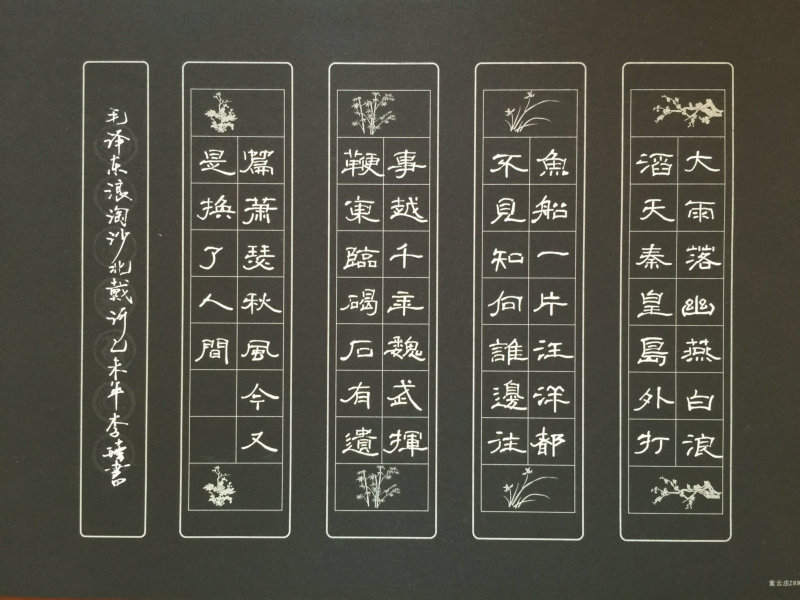 大雨落幽燕白浪
滔天秦皇島外打
魚船一片汪洋都
不見知向誰邊往
事越千年魏武揮
鞭東臨碣石有遺
篇蕭瑟秋風今又
是換了人間
毛泽东浪淘沙北戴河乙未年李書
紫云庄289